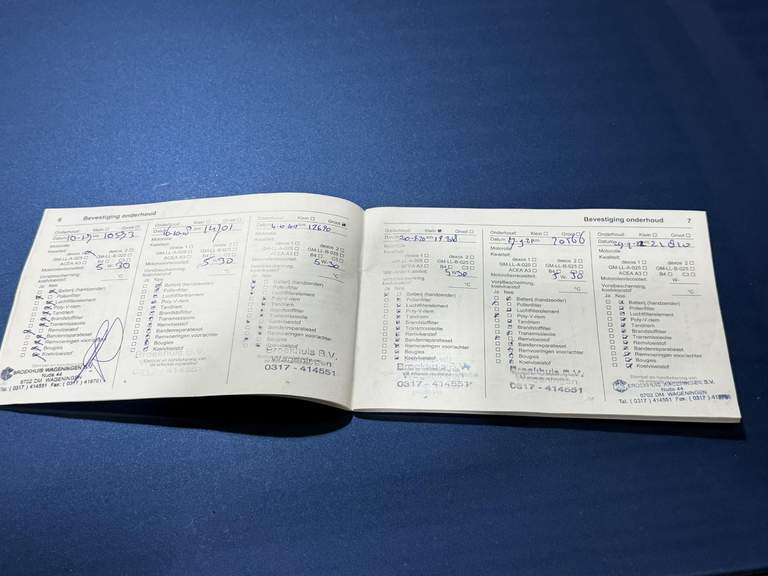 6 Bevestiging onderhoud
Onderhoud: Klein Groot
Datum 10-
10533
Motorolie
Kwaliteit: dexos 1 dexos 2
GM-LL-A-025 GM-LL-B-025
ACEA A3 B4 C3
Motorolieviscositeit: 5-30
Vorstbescherming
koelvloeistof °C
Ja Nee
Batterij (handzender)
Pollenfilter
Luchtfilterelement
Poly-V riem
Tandriem
Brandstoffilter
Transmissieolie
Remvloeistof
Bandenreparatieset
Remvoeringen voor/achter
Bougies
Koelvloeistof
BROEKHUIS WAGENINGEN B.V.
Nude 44
6702 DM WAGENINGEN
Tel. ( 0317 ) 414551 Fax: ( 0317 )
Groot
14701
Motorolie
Kwaliteit: dexos 1 dexos 2
GM-LL-A-025 GM-LL-B-025
ACEA A3 B4 C3
Motorolieviscositeit: 5-30
Vorstbescherming
koelvloeistof °C
Ja Nee
Batterij (handzender)
Pollenfilter
Luchtfilterelement
Poly-V riem
Tandriem
Brandstoffilter
Transmissieolie
Remvloeistof
Bandenreparatieset
Remvoeringen voor/achter
Bougies
Koelvloeistof
Onderhoud: Klein Groot
Motorolie
Kwaliteit: dexos 1 dexos 2
GM-LL-A-025 GM-LL-B-025
ACEA A3 B4 C3
Motorolieviscositeit: 5-30
Vorstbescherming
koelvloeistof °C
Ja Nee
Batterij (handzender)
Pollenfilter
Luchtfilterelement
Poly-V riem
Tandriem
Brandstoffilter
Transmissieolie
Remvloeistof
Bandenreparatieset
Remvoeringen voor/achter
Bougies
Koelvloeistof
Broekhuis B.V.
Wageningen
0317 - 414551
Bevestiging onderhoud 7
Onderhoud: Klein Groot
Datum
Motorolie
Kwaliteit: dexos 1 dexos 2
GM-LL-A-025 GM-LL-B-025
ACEA A3 B4 C3
5-30
koelvloeistof °C
Ja Nee
Batterij (handzender)
Pollenfilter
Luchtfilterelement
Poly-V riem
Tandriem
Brandstoffilter
Transmissieolie
Remvloeistof
Bandenreparatieset
Remvoeringen voor/achter
Bougies
Koelvloeistof
0317 - 414551
Onderhoud: Klein Groot
Datum
20566
Motorolie
Kwaliteit: dexos 1 dexos 2
GM-LL-A-025 GM-LL-B-025
ACEA A3 B4 C3
Motorolieviscositeit: 5 W- 30
Vorstbescherming
koelvloeistof °C
Ja Nee
Batterij (handzender)
Pollenfilter
Luchtfilterelement
Poly-V riem
Tandriem
Brandstoffilter
Transmissieolie
Remvloeistof
Bandenreparatieset
Remvoeringen voor/achter
Bougies
Koelvloeistof
Broekhuis B.V.
Wageningen
0317 - 414551
Onderhoud: Klein Groot
Datum
Motorolie
Kwaliteit: dexos 1 dexos 2
GM-LL-A-025 GM-LL-B-025
ACEA A3 B4 C3
Motorolieviscositeit: W-
Vorstbescherming
koelvloeistof °C
Ja Nee
Batterij (handzender)
Pollenfilter
Luchtfilterelement
Poly-V riem
Tandriem
Brandstoffilter
Transmissieolie
Remvloeistof
Bandenreparatieset
Remvoeringen voor/achter
Bougies
Koelvloeistof
BROEKHUIS WAGENINGEN B.V.
Nude 44
6702 DM WAGENINGEN
Tel. ( 0317 ) 414551 Fax: ( 0317 )